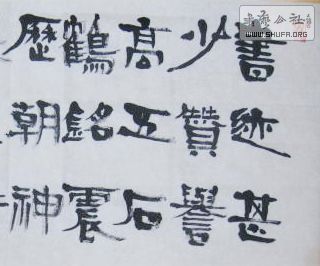 書迹甚
少贊譽
高五石
鶴銘震
歷朝神
書藝公社
WWW.SHUFA.ORG